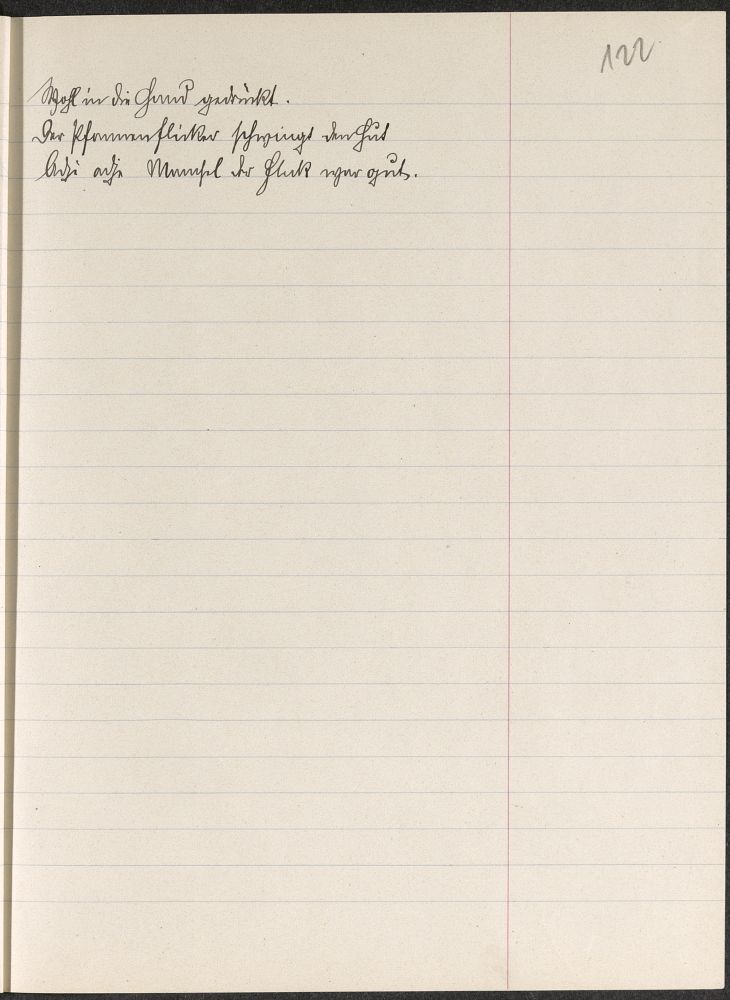 122
Wohl in die Hand gedrückt.
Der Pfannenflicker schwingt den Hut
Adje adje Mamsel der Fleck war gut.